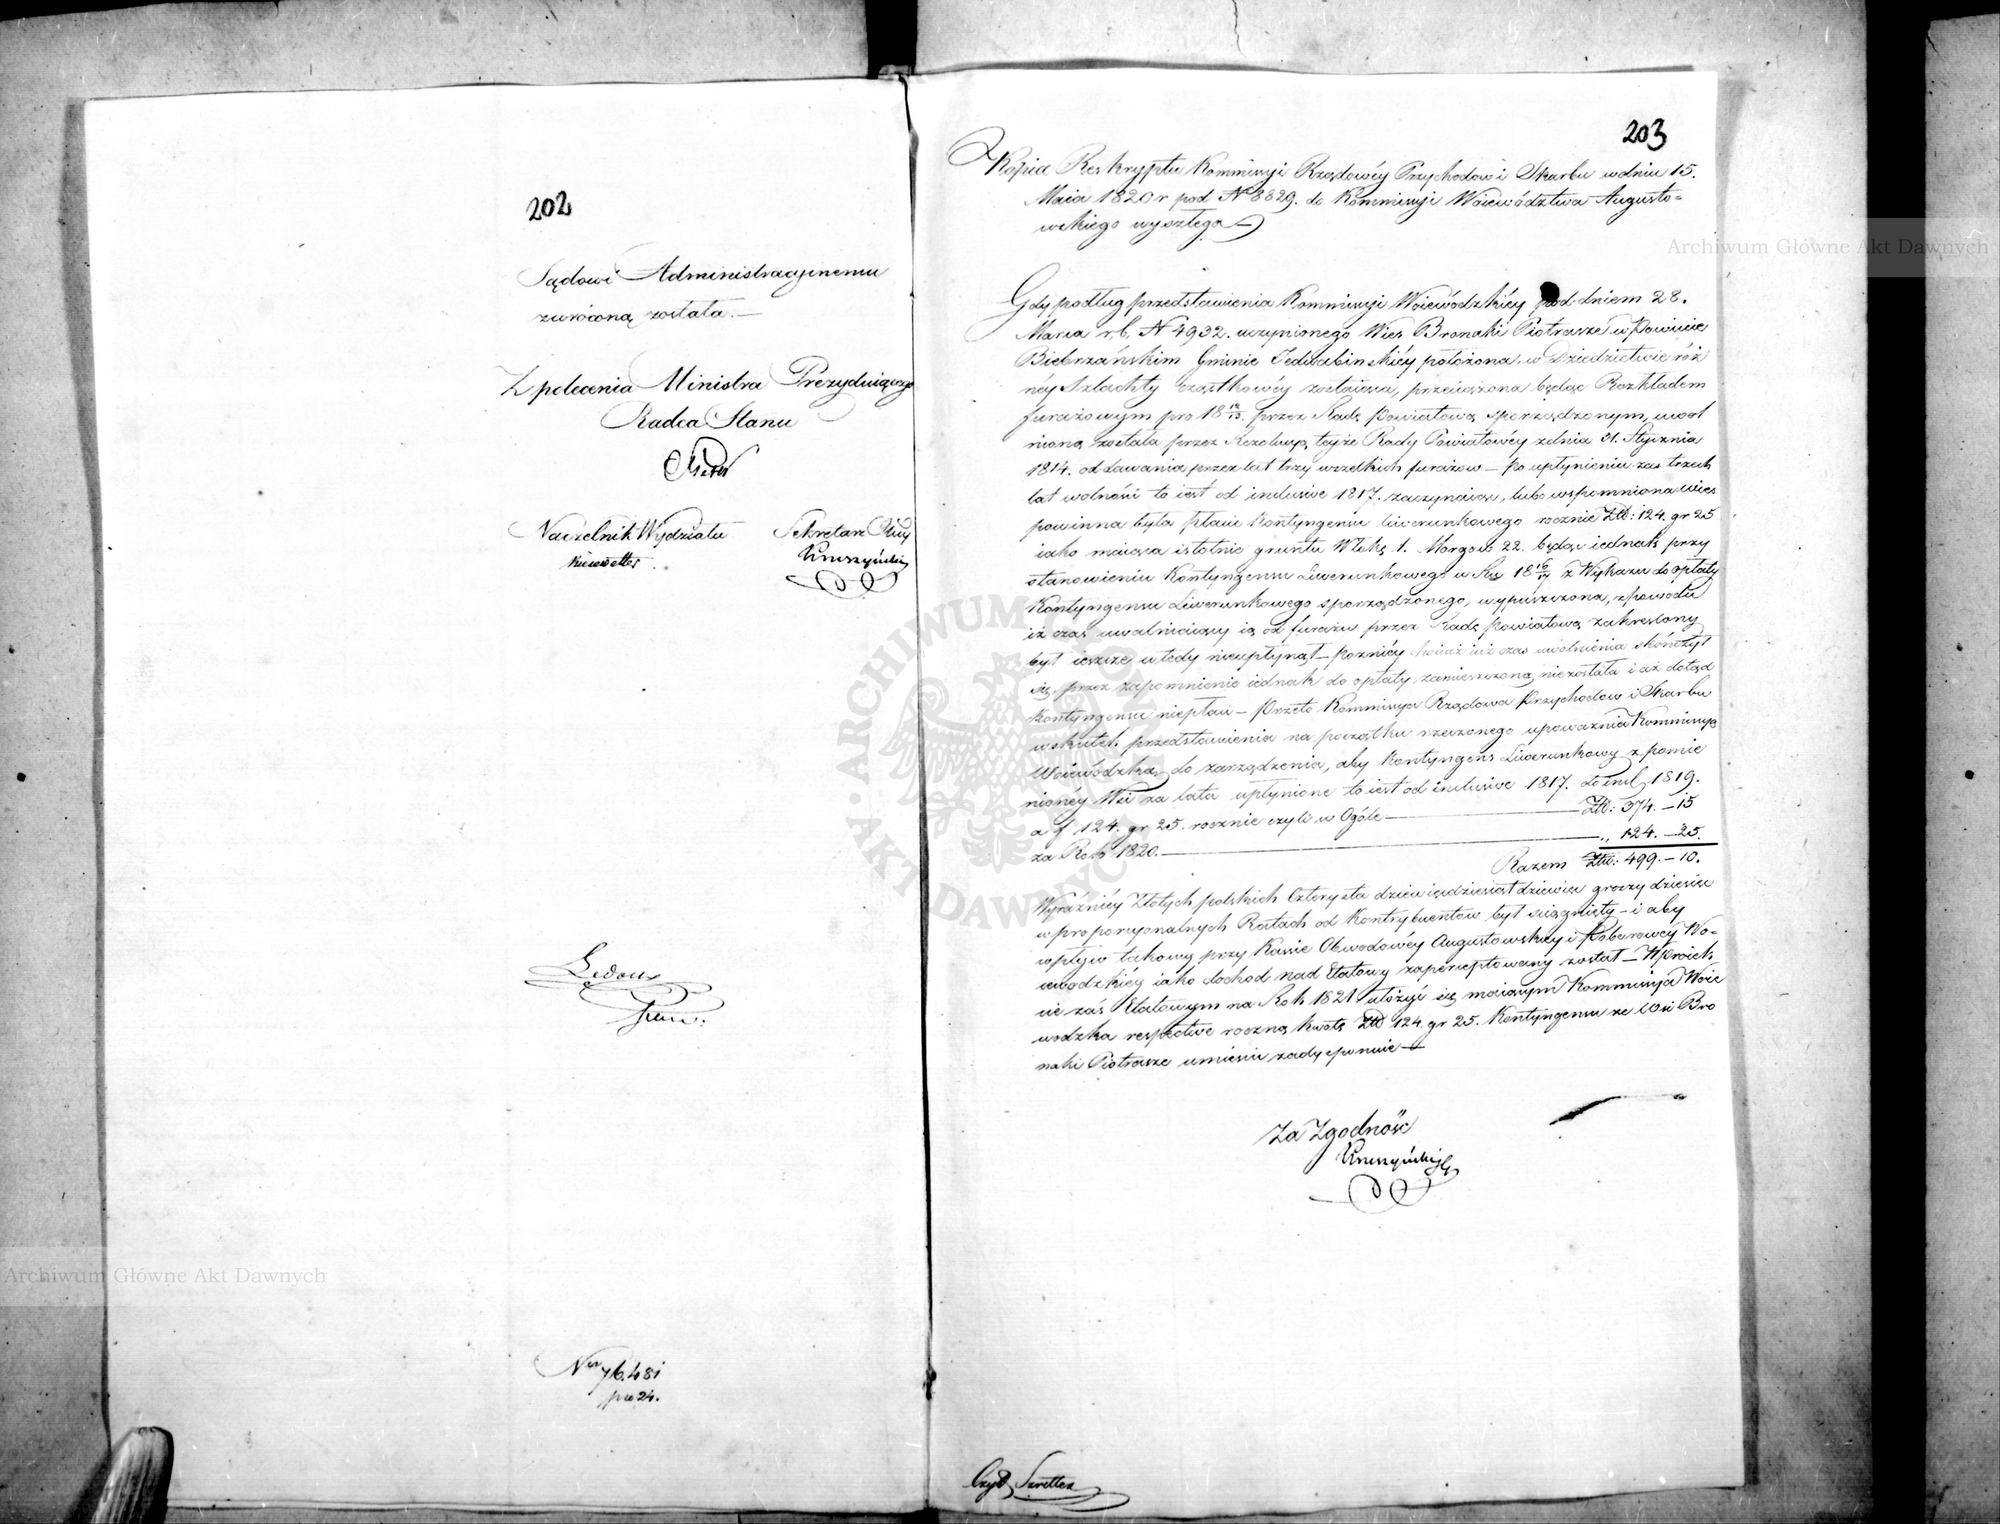 202
Sądowi Administracyinemu
zwróconą została.—
Z polecenia Ministra Prezyduiącego
Radca Stanu
Naczelnik Wydziału
Kiesewetter
Sekretarz
Kruszyński
Nro 76.481
pro 24.
203
Kopia Reskryptu Kommisyi Rządowéy Przychodów i Skarbu w dniu 15.
Maia 1820 r pod N 8829. do Kommisyi Woiewództwa Augusto=
wskiego wyszłego —
Gdy podług przedstawienia Kommisyi Woiewódzkiéy pod dniem 28.
Marca r. b. N 4932. uczynionego Wieś Bronaki Piotrasze w Powiecie
Biebrzanskim Gminie Jedwabinskiéy położona, w Dziedzictwie róż
néy Szlachty cząstkowéy zostaiąca, przeciążona będąc Rozkładem
furażowym pro 18 12/13 przez Radę Powiatową sporządzonym, uwol
nioną została przez Rezolucyą teyże Rady Powiatowéy z dnia 31. Stycznia
1814. od dawania przez lat trzy wszelkich furażow — po upłynieniu zaś trzech
lat wolności to iest od inclusive 1817. zaczynaiąc, lubo wspomniona wieś
powinna była płacić Kontyngensu liwerunkowego rocznie Złł: 124. gr 25
iako maiąca istotnie gruntu Włokę 1. Morgow 22. będąc iednak przy
stanowieniu Kontyngensu Liwerunkowego w Rku 18 16/17 z Wykazu do opłaty
Kontyngensu Liwerunkowego sporządzonego, wypuszczona, z powodu
iż czas uwalniaiący ią od furażu przez Radę Powiatową zakreślony
był ieszcze wtedy nieupłynął — poznićy chociaż iuż czas uwolnienia skończył
się, przez zapomnienie iednak do opłaty zamieszczoną niezostała i aż dotąd
Kontyngensu niepłaci — Przeto Kommissya Rządowa Przychodow i Skarbu
wskutek przedstawienia na początku rzeczonego upoważnia Kommissyą
Woiewódzką do zarządzenia, aby Kontyngens Liwerunkowy z pomie
nionéy Wsi za lata upłynione to iest od inclusive 1817. do incl. 1819.
a f 124. gr 25. rocznie czyli w Ogóle — Złł: 374. — 15
za Rok 1820. — „ 124. — 25.
Razem Złł: 499. — 10.
Wyraźniéy Złotych polskich Czterysta dziewięćdziesiąt dziewięć groszy dziesięć
w proporcyonalnych Ratach od Kontrybuentow był ściągnięty — i aby
wpływ takowy przy Kassie Obwodowéy Augustowskiey i Poborowéy Wo=
iewodzkiéy iako dochod nad Etatowy zaperceptowany został — W proiek
cie zaś Etatowym na Rok 1821 ułożyć się maiącym Kommissya Woie
wodzka respective roczną kwotę Złł 124. gr 25. Kontyngensu ze Wsi Bro
naki Piotrasze umieścić zadysponuie —
Za Zgodność
Kruszyński
Czyt. Szretter